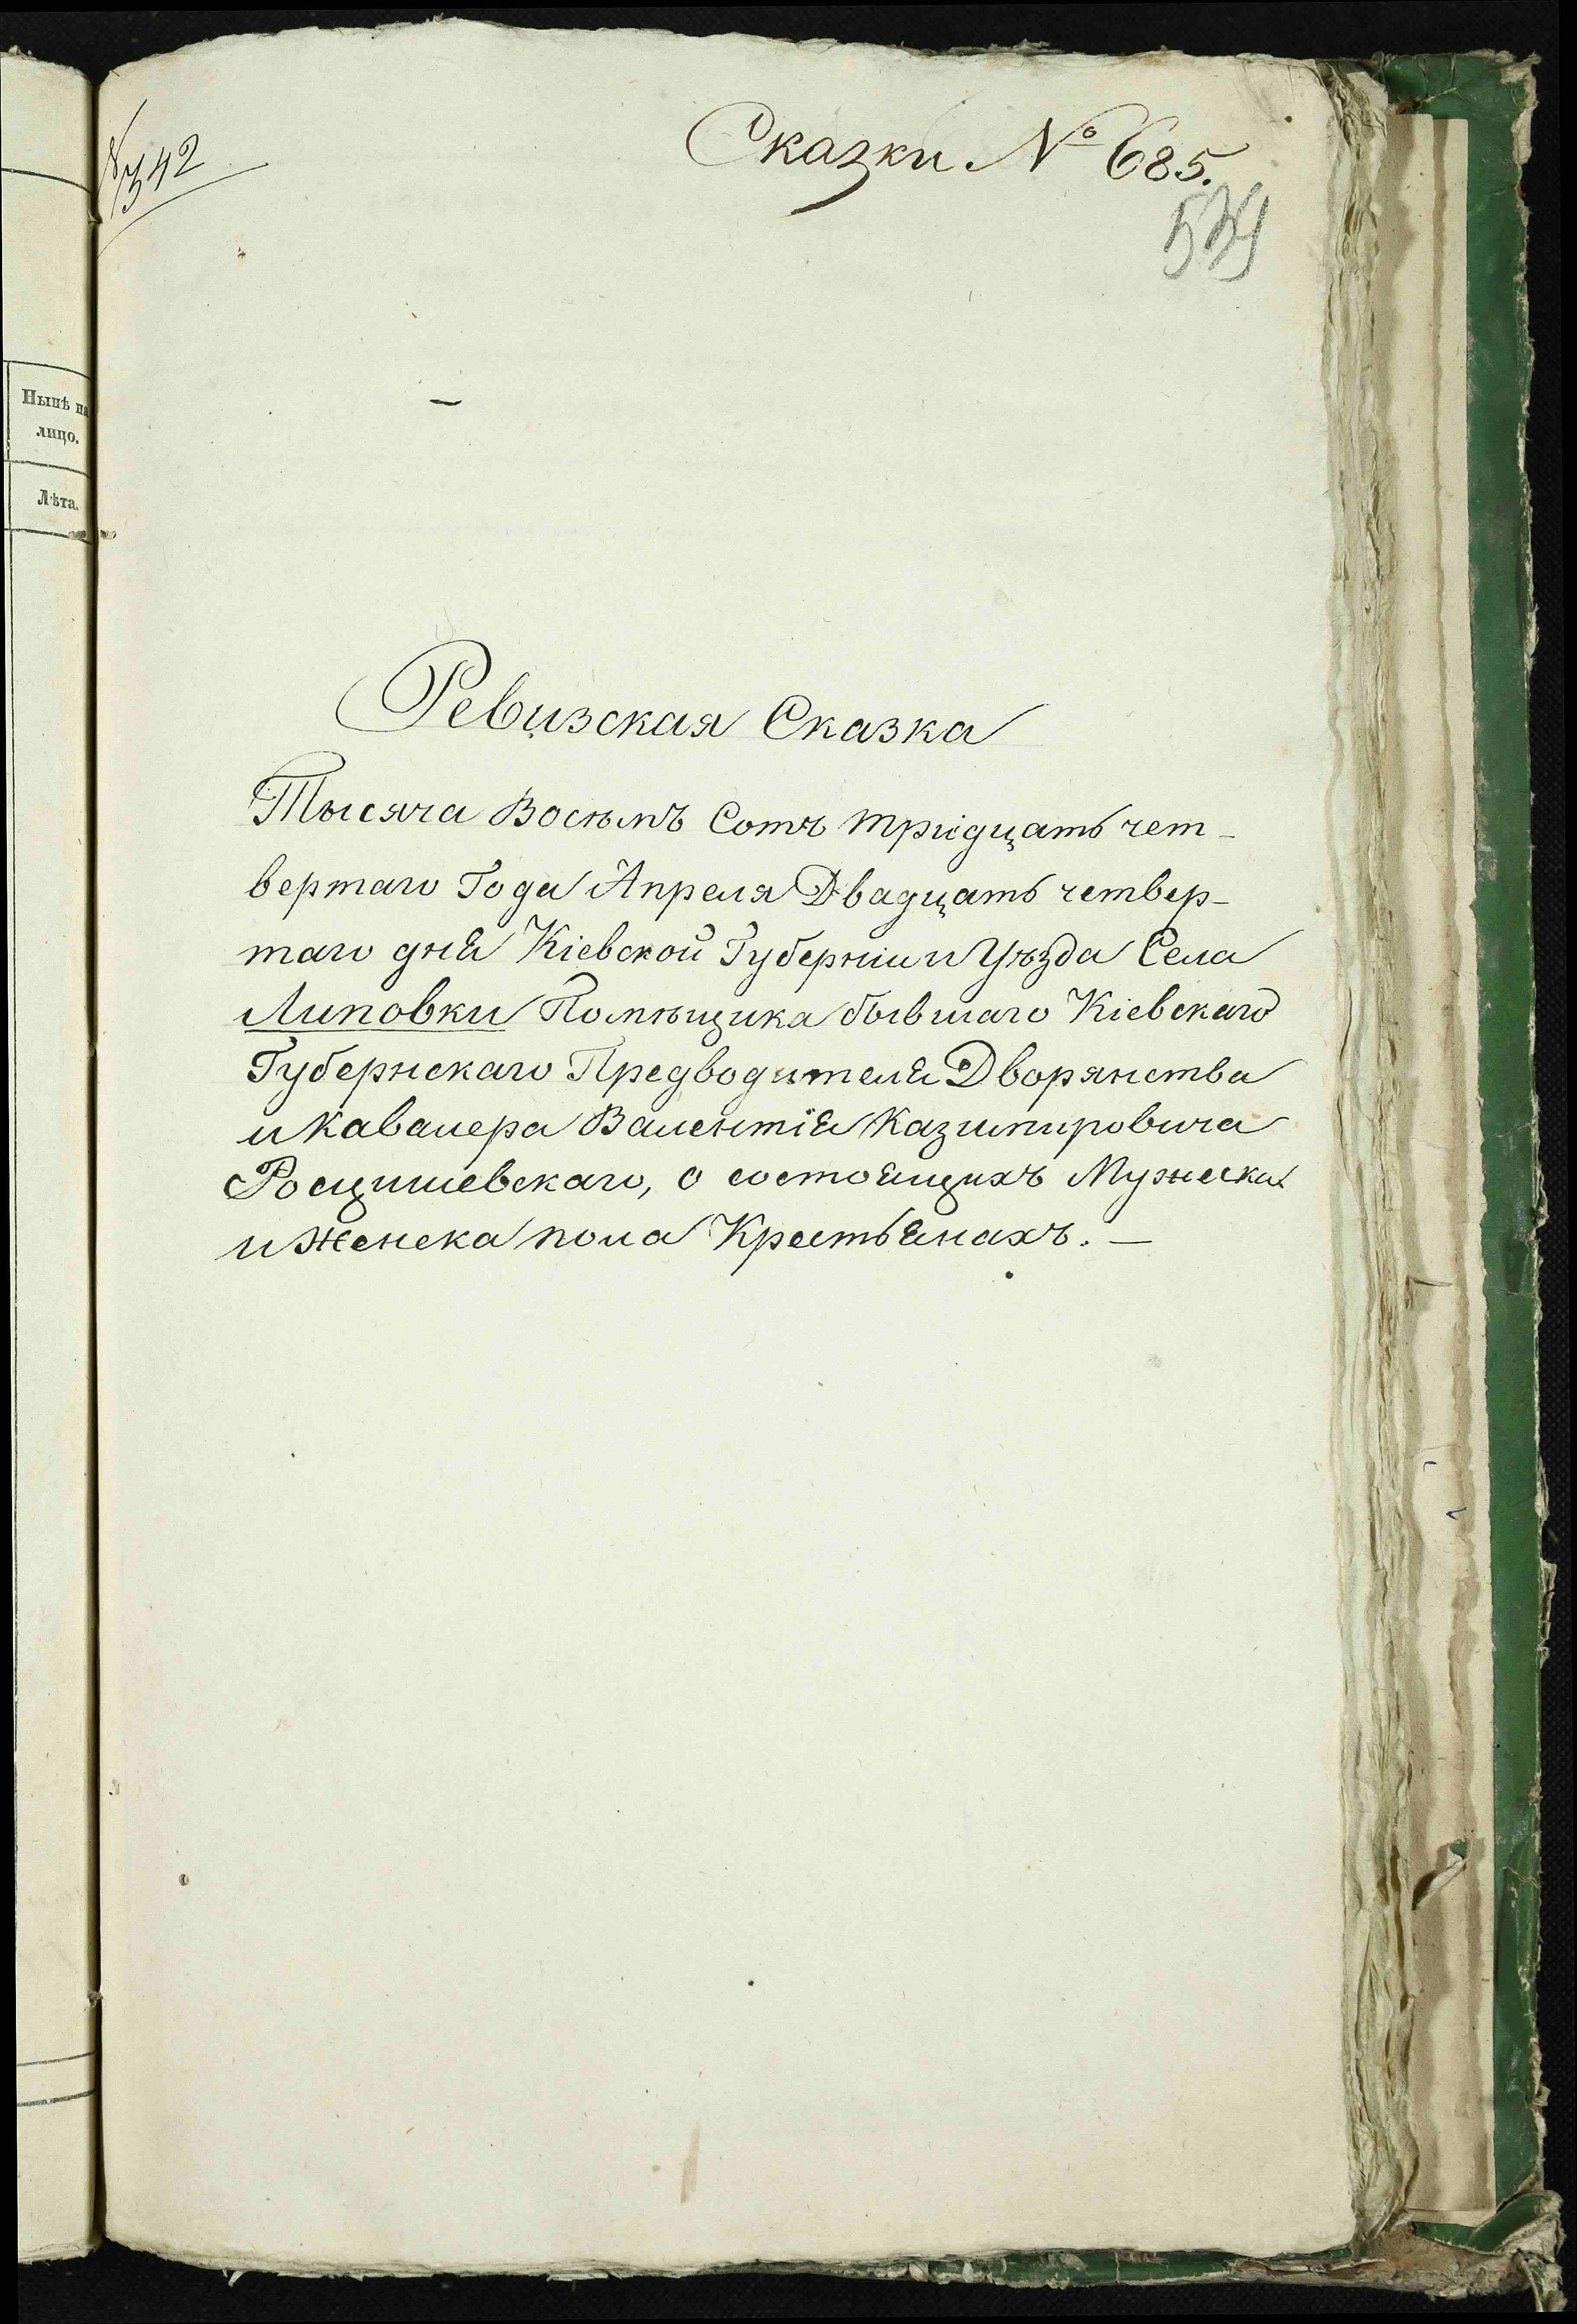 № 342
Сказки № 685.
539
Нынѣ на
лицо.
Лѣта.
Ревизская Сказка
Тысяча Восѣмъ Сотъ тридцать чет-
вертаго Года Апреля Двадцать четвер-
таго дня Кіевской Губерніи и Уѣзда Села
Липовки Помѣщика бывшаго Кіевскаго
Губернскаго Предводителя Дворянства
и кавалера Валентія Казимировича
Росцишевскаго, о состоящихъ Мужеска
и Женска пола Крестьянахъ. —